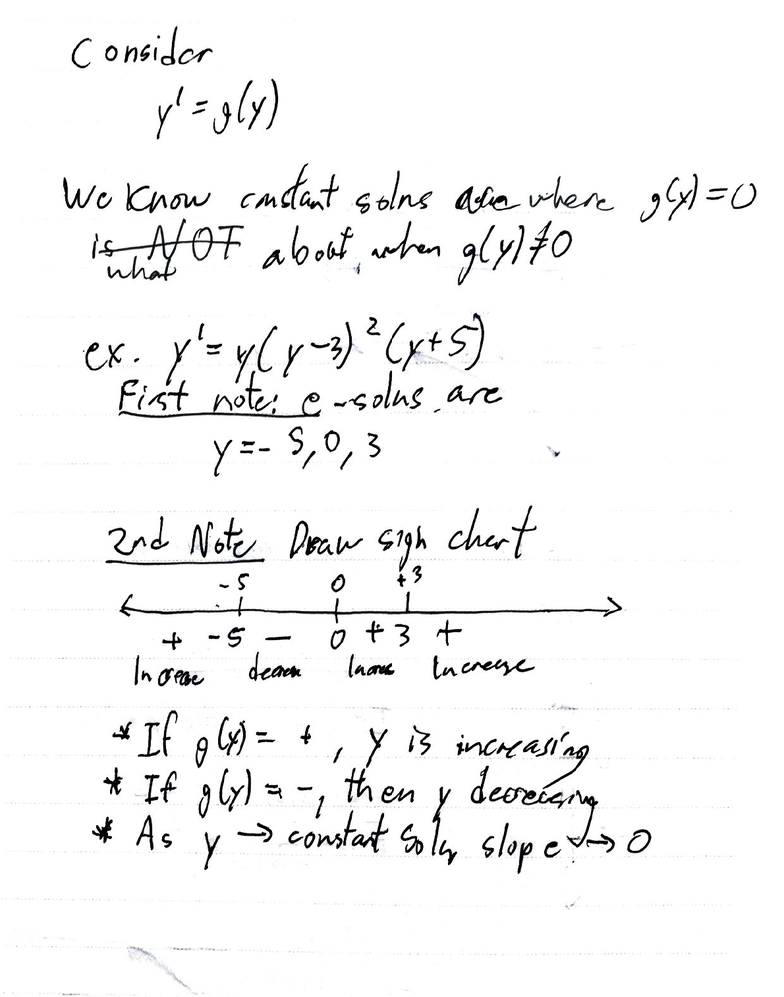 Consider
y' = g(y)
We know constant solns are where g(y) = 0
is NOT about when g(y) ≠ 0
what
ex. y' = y(y-3)²(y+5)
First note: e-solns are
y = -5, 0, 3
2nd Note Draw sign chart
-5 0 +3
+ -5 - 0 + 3 +
Increase decrease Increase Increase
* If g(y) = +, y is increasing
* If g(y) = -, then y decreasing
* As y → constant soln slope → 0